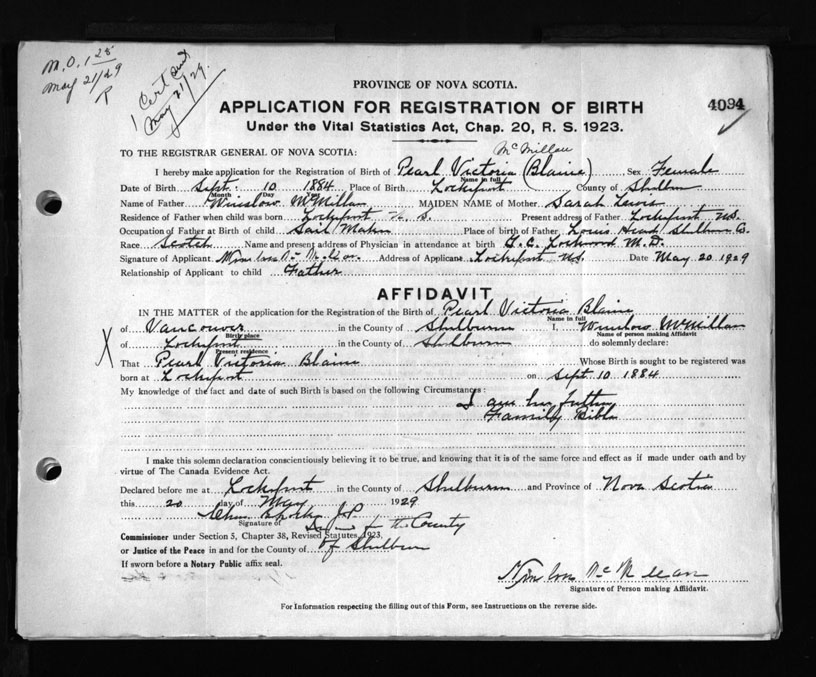 M.O. 1 25
May 21/29
1 Cert sent
May 21/29.
PROVINCE OF NOVA SCOTIA.
APPLICATION FOR REGISTRATION OF BIRTH
4094
Under the Vital Statistics Act, Chap. 20, R. S. 1923.
McMillan
TO THE REGISTRAR GENERAL OF NOVA SCOTIA:
I hereby make application for the Registration of Birth of Pearl Victoria (Blaine) Sex Female
Name in full
Date of Birth Sept. 10 1884 Place of Birth Lockeport County of Shelburne
Month Day Year
Name of Father Winslow McMillan MAIDEN NAME of Mother Sarah Lewis
Residence of Father when child was born Lockeport N. S. Present address of Father Lockeport NS.
Occupation of Father at Birth of child Sail Maker Place of birth of Father Louis Head Shelburne Co.
Race Scotch Name and present address of Physician in attendance at birth Lockwood M.D.
Signature of Applicant Address of Applicant Lockeport NS. Date May 20 1929
Relationship of Applicant to child Father
AFFIDAVIT
IN THE MATTER of the application for Registration of the Birth of Pearl Victoria Blaine
Name in full
of Vancouver in the County of Shelburne I, Winslow McMillan
Birth place Name of person making Affidavit
of Lockeport in the County of Shelburne do solemnly declare:
Present residence
X That Pearl Victoria Blaine Whose Birth is sought to be registered was
born at Lockeport on Sept. 10 1884
My knowledge of the fact and date of such Birth is based on the following Circumstances:
I am her father
Family Bible
I make this solemn declaration conscientiously believing it to be true, and knowing that it is of the same force and effect as if made under oath and by
virtue of The Canada Evidence Act.
Declared before me at Lockeport in the County of Shelburne and Province of Nova Scotia
this 20 day of May 1929
J.P.
Signature of in & for the County
Commissioner under Section 5, Chapter 38, Revised Statutes, 1923,
or Justice of the Peace in and for the County of of Shelburne
If sworn before a Notary Public affix seal.
Signature of Person making Affidavit.
For Information respecting the filling out of this Form, see Instructions on the reverse side.